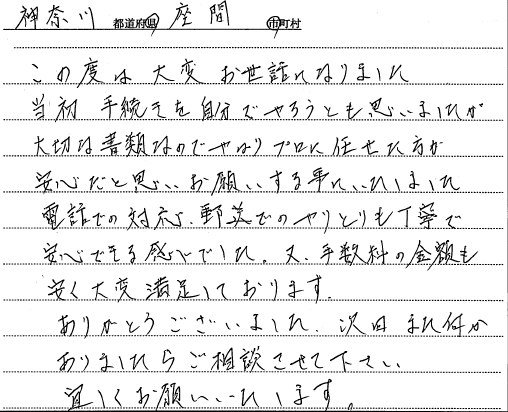 神奈川 都道府県 座間 市町村
この度は大変お世話になりました
当初 手続きを自分でやろうとも思いましたが
大切な書類なのでやはりプロに任せた方が
安心だと思いお願いする事にいたしました
電話での対応、郵送でのやりとりも丁寧で
安心できる感じでした。又、手数料の金額も
安く大変満足しております。
ありがとうございました。次回また何か
ありましたらご相談させて下さい
宜しくお願いいたします。